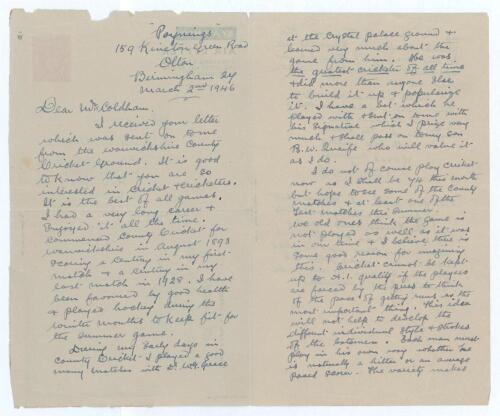 "Poynings"
159 Kineton Green Road
Olton
Birmingham 27
March 2nd 1946
Dear Mr Coldham,
I received your letter
which was sent on to me
from the Warwickshire County
Cricket Ground. It is good
to know that you are so
interested in Cricket & Cricketers.
It is the best of all games.
I had a very long career &
enjoyed it all the time.
Commenced County Cricket for
Warwickshire in August 1893
scoring a century in my first
match & a century in my
last match in 1928. I have
been favoured by good health
& played hockey during the
winter months to keep fit for
the summer game.
During my early days in
County Cricket I played a good
many matches with Dr. W.G. Grace
at the Crystal Palace ground &
learned very much about the
game from him. He was
the greatest cricketer of all time
& did more than anyone else
to build it up & popularize
it. I have a bat which he
played with & sent on to me with
his signature which I prize very
much & shall pass on to my son
B.W. Quaife who will value it
as I do.
I do not of course play cricket
now as I shall be 74 this month
but hope to see some of the County
matches & at least one of the
Test matches this summer.
We old ones think the game is
not played as well as it was
in our time & I believe there is
some good reason for imagining
this. Cricket cannot be kept
up to A.1. quality if the players
are forced by the press to think
of the pace of getting runs as the
most important thing. This idea
will not help to develop the
different individual style & strokes
of the batsmen. Each man must
play in his own way whether he
is naturally a hitter or an average
paced scorer. The variety makes